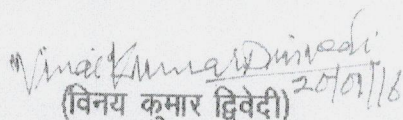 Vinai Kumar Dwivedi
20/01/16
(विनय कुमार द्विवेदी)